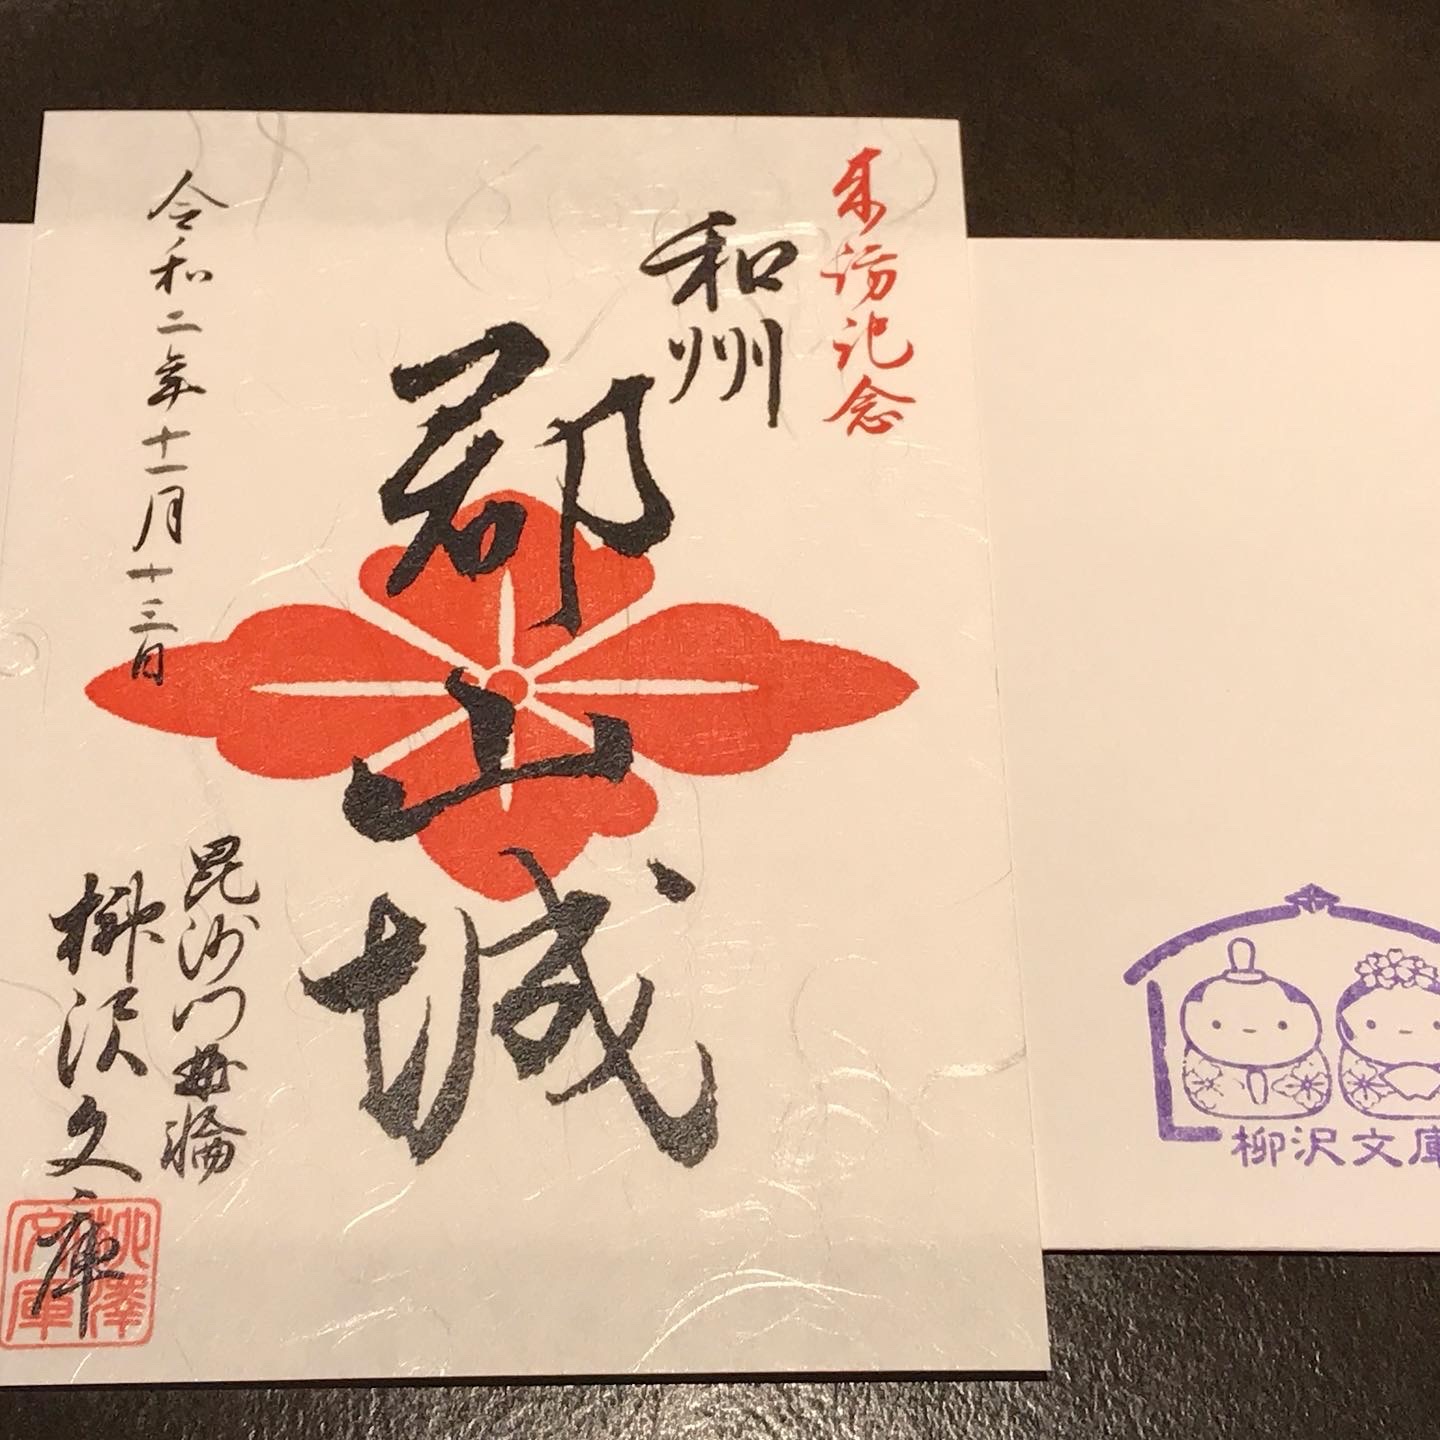 来訪記念
和州
郡山城
令和二年十一月十三日
毘沙門曲輪
柳沢文庫
柳澤文庫
柳沢文庫